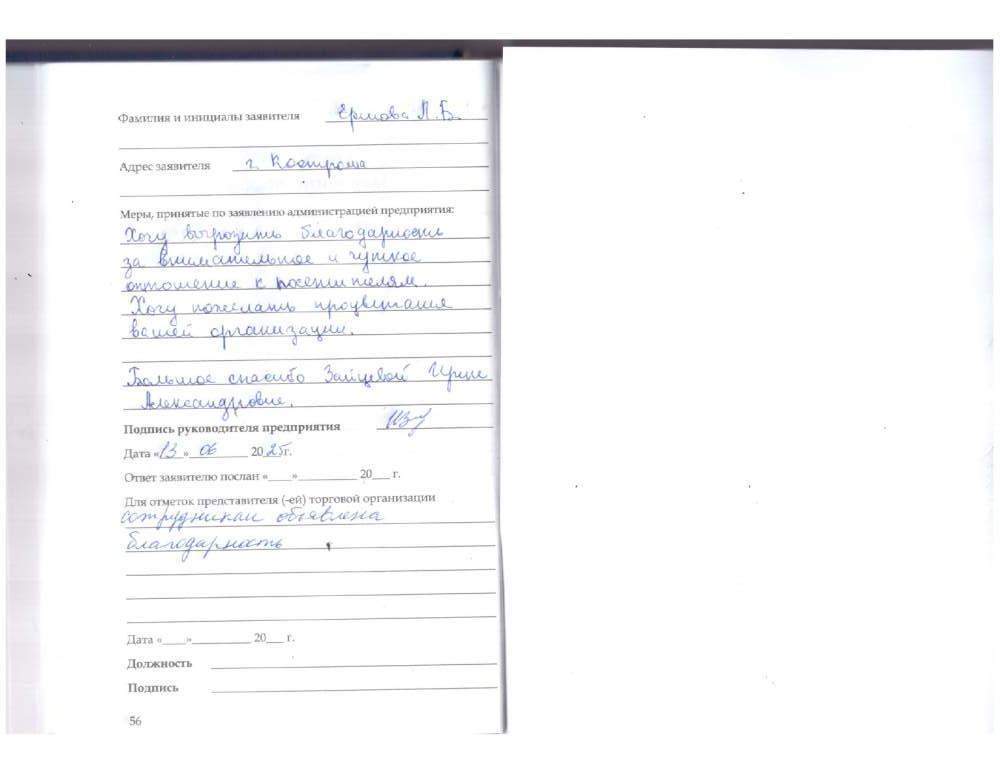 Фамилия и инициалы заявителя Ершова Л.Б.
Адрес заявителя г. Кострома
Меры, принятые по заявлению администрацией предприятия:
Хочу выразить благодарность
за внимательное и чуткое
отношение к посетителям.
Хочу пожелать процветания
вашей организации.
Большое спасибо Зайцевой Ирине
Александровне.
Подпись руководителя предприятия
Дата «13» 06 2025г.
Ответ заявителю послан «____»__________ 20___ г.
Для отметок представителя (-ей) торговой организации
сотрудникам объявлена
благодарность
Дата «____»__________ 20___ г.
Должность
Подпись
56